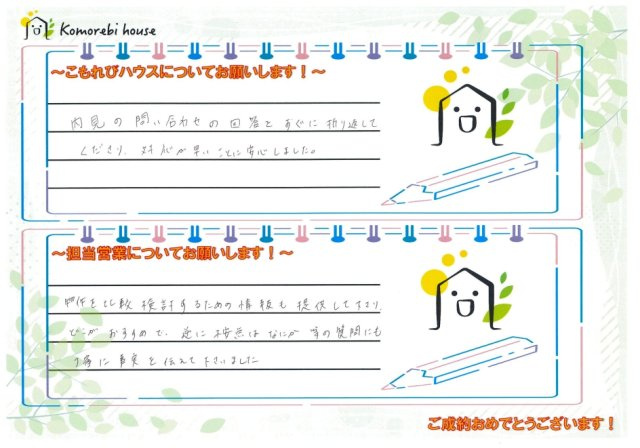 Komorebi house
～こもれびハウスについてお願いします！～
内見の問い合わせの回答をすぐに折り返して
くださり、対応が早いことに安心しました。
～担当営業についてお願いします！～
物件を比較検討するための情報も提供して下さり、
どこがおすすめで、逆に懸念はなにか 等の質問にも
丁寧に事実を伝えて下さいました
ご成約おめでとうございます！